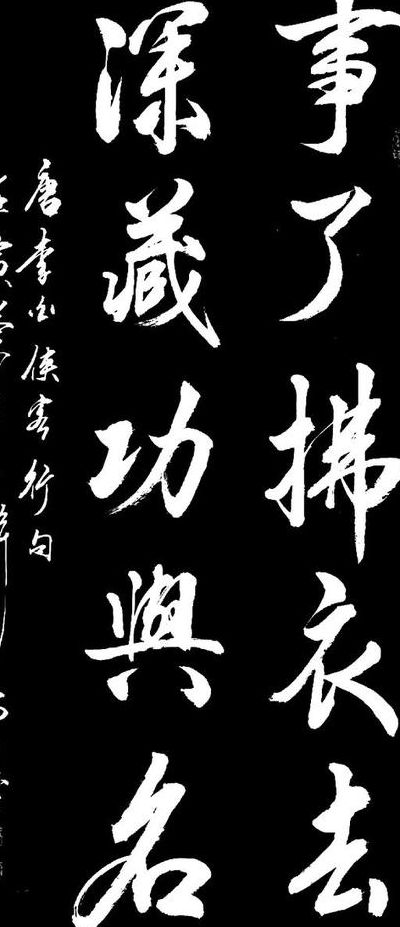 事了拂衣去
深藏功與名
唐李白俠客行句